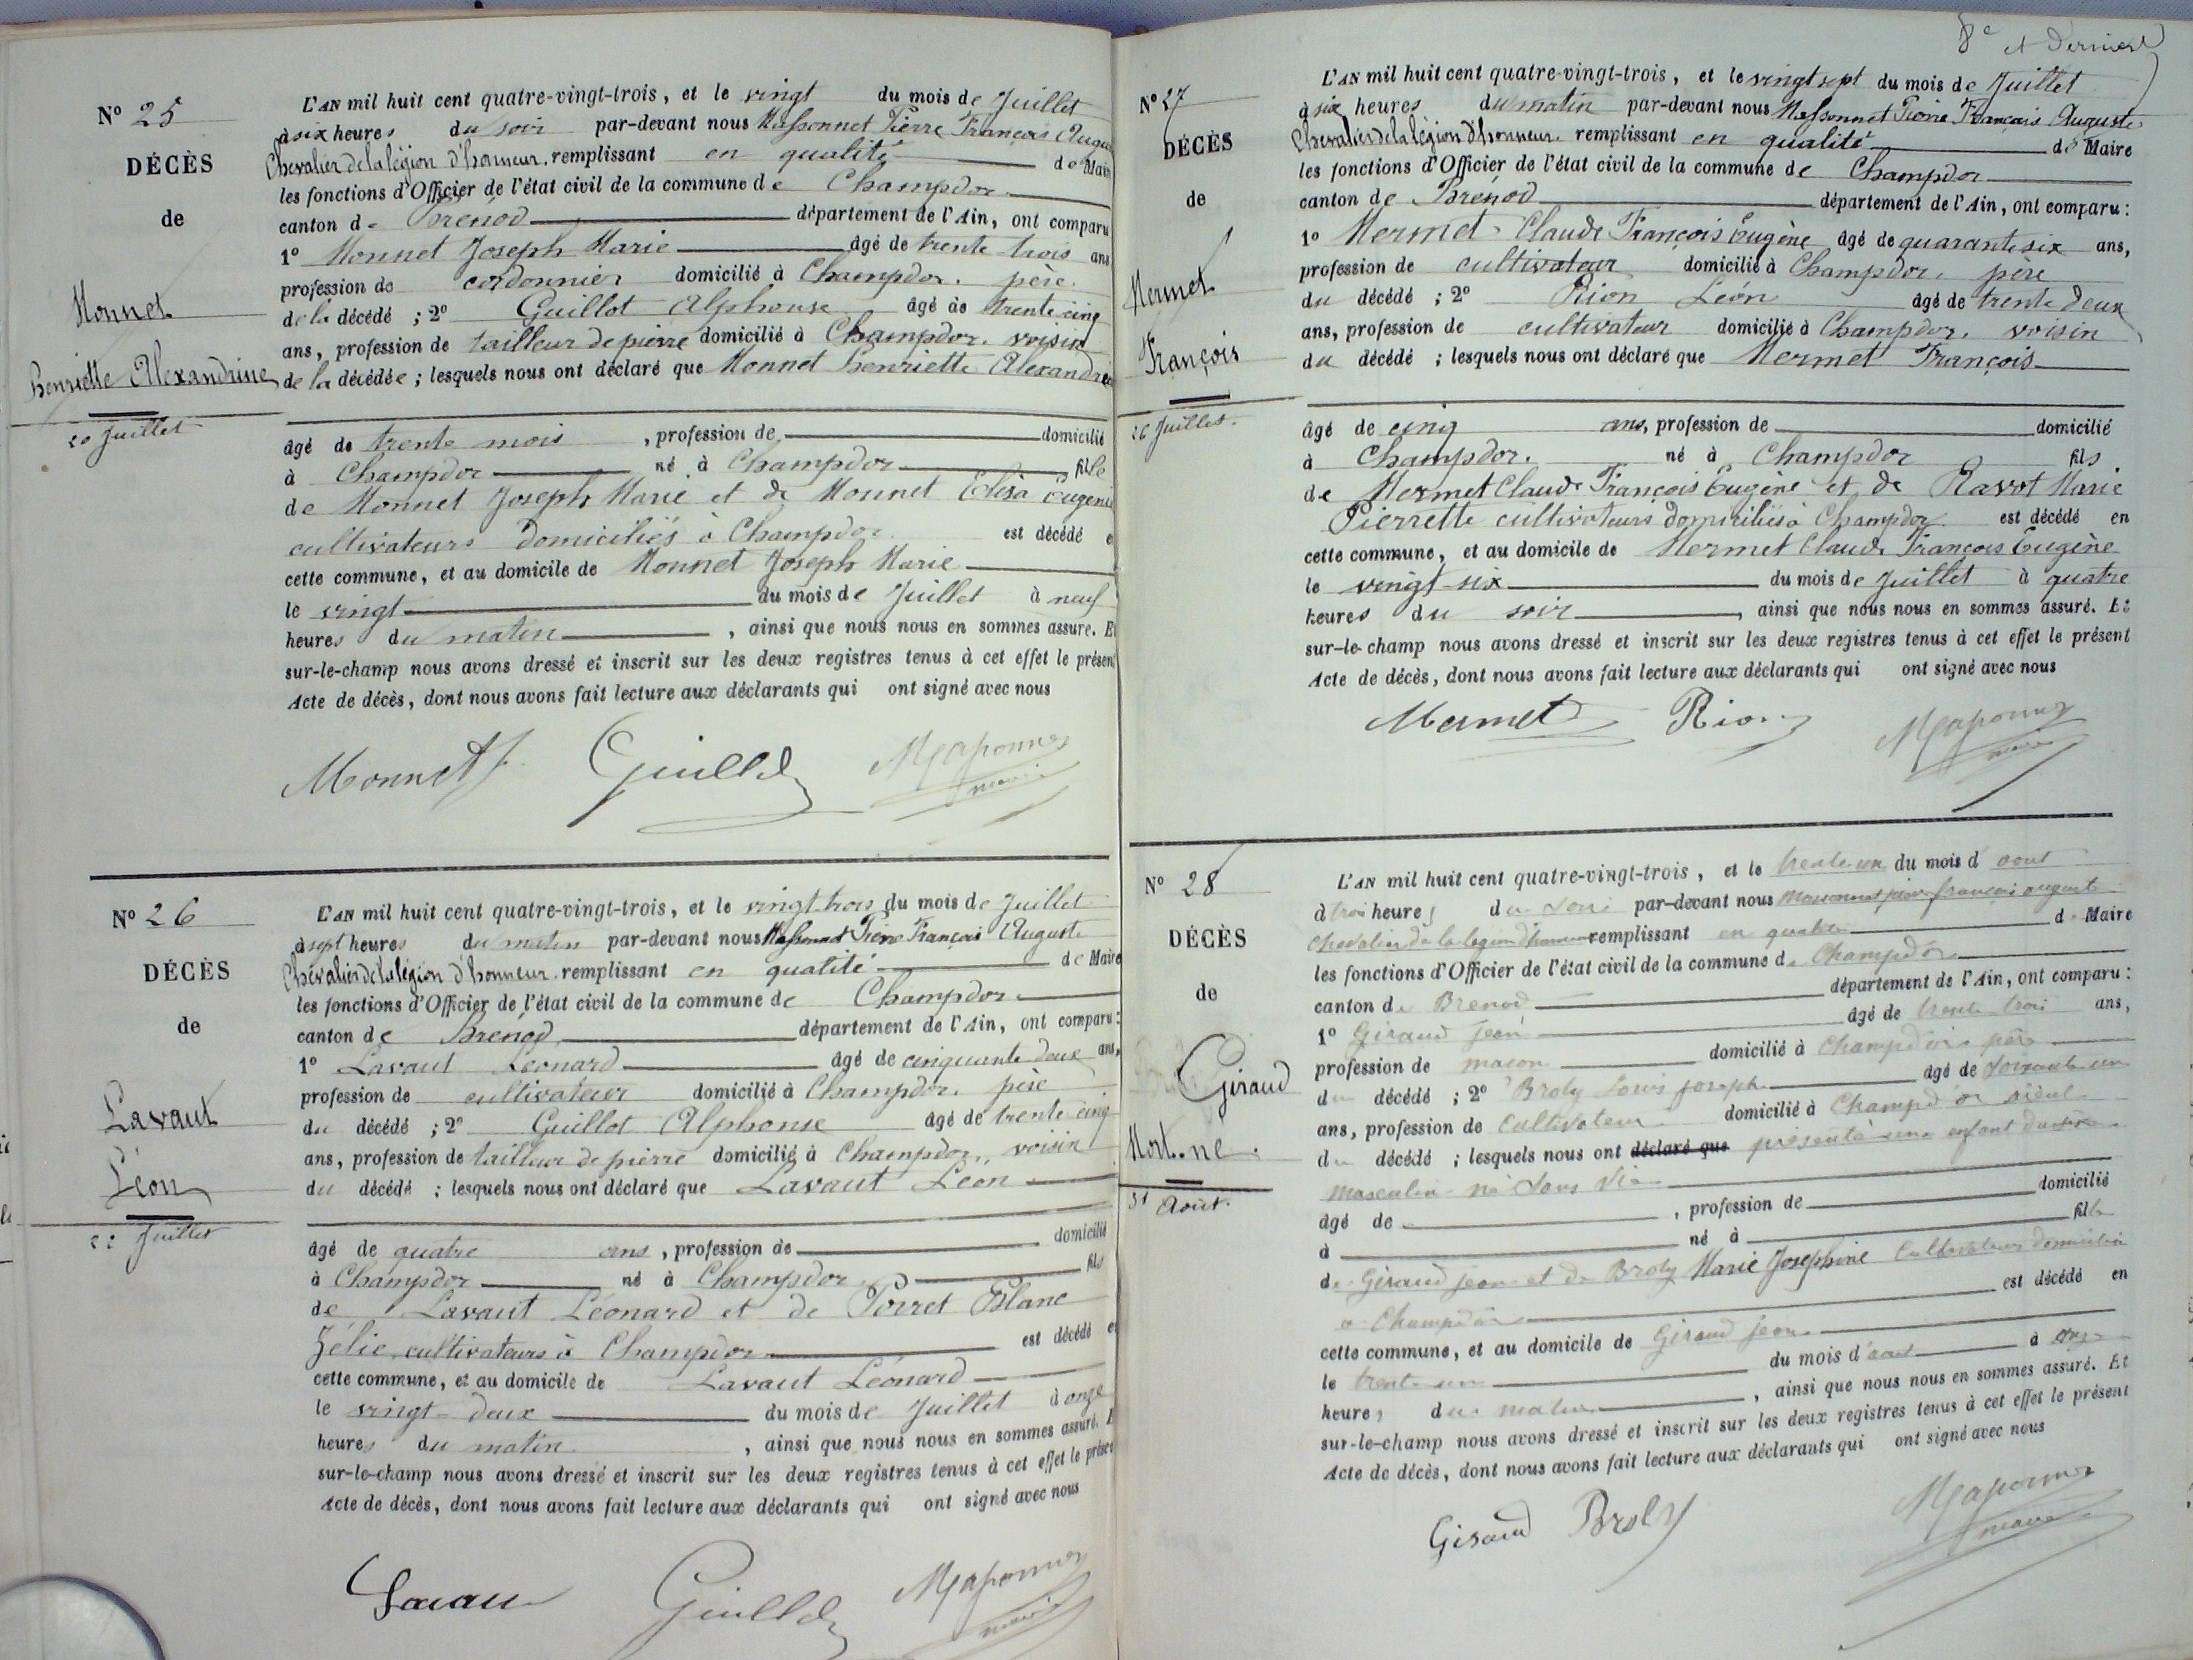 Nº 25
DÉCÈS
de
Monnet
Henriette Alexandrine
20 Juillet
L'AN mil huit cent quatre-vingt-trois, et le vingt du mois de Juillet
à six heures du soir par-devant nous Massonnet Pierre François Augus
Chevalier de la légion d'honneur, remplissant en qualité de Maire
les fonctions d'Officier de l'état civil de la commune de Champdor
canton de Brénod département de l'Ain, ont comparu
1º Monnet Joseph Marie âgé de trente trois ans
profession de cordonnier domicilié à Champdor. père
de la décédé ; 2º Guillot Alphonse âgé de trente cinq
ans, profession de tailleur de pierre domicilié à Champdor. voisin
de la décédée ; lesquels nous ont déclaré que Monnet henriette Alexandrine
âgé de trente mois , profession de domicilié
à Champdor né à Champdor fille
de Monnet Joseph Marie et de Monnet Elisa Eugenie
cultivateurs domiciliés à Champdor est décédé e
cette commune, et au domicile de Monnet Joseph Marie
le vingt du mois de Juillet à neuf
heures du matin , ainsi que nous nous en sommes assuré. Et
sur-le-champ nous avons dressé et inscrit sur les deux registres tenus à cet effet le présent
Acte de décès, dont nous avons fait lecture aux déclarants qui ont signé avec nous
Monnet J. Guillot Massonnet
maire
Nº 26
DÉCÈS
de
Lavaut
Léon
22 Juillet
L'AN mil huit cent quatre-vingt-trois, et le vingt trois du mois de Juillet
à sept heures du matin par-devant nous Massonnet Pierre François Auguste
Chevalier de la légion d'honneur. remplissant en qualité de Maire
les fonctions d'Officier de l'état civil de la commune de Champdor
canton de Brénod département de l'Ain, ont comparu :
1º Lavaut Léonard âgé de cinquante deux ans,
profession de cultivateur domicilié à Champdor. père
du décédé ; 2º Guillot Alphonse âgé de trente cinq
ans, profession de tailleur de pierre domicilié à Champdor, voisin
du décédé ; lesquels nous ont déclaré que Lavaut Léon
âgé de quatre ans , profession de domicilié
à Champdor né à Champdor fils
de Lavaut Léonard et de Porret Blanc
Zélie, cultivateurs à Champdor est décédé e
cette commune, et au domicile de Lavaut Léonard
le vingt-deux du mois de Juillet à onze
heures du matin , ainsi que nous nous en sommes assuré. E
sur-le-champ nous avons dressé et inscrit sur les deux registres tenus à cet effet le présen
Acte de décès, dont nous avons fait lecture aux déclarants qui ont signé avec nous
Lavau Guillot Massonnet
maire
8e et dernier
Nº 27
DÉCÈS
de
Mermet
François
26 Juillet.
L'AN mil huit cent quatre-vingt-trois, et le vingt sept du mois de Juillet
à six heures du matin par-devant nous Massonnet Pierre François Auguste
Chevalier de la légion d'honneur. remplissant en qualité de Maire
les fonctions d'Officier de l'état civil de la commune de Champdor
canton de Brénod département de l'Ain, ont comparu :
1º Mermet Claude François Eugène âgé de quarante six ans,
profession de cultivateur domicilié à Champdor. père
du décédé ; 2º Rion Léon âgé de trente deux
ans, profession de cultivateur domicilié à Champdor. voisin
du décédé ; lesquels nous ont déclaré que Mermet François
âgé de cinq ans, profession de domicilié
à Champdor. né à Champdor fils
de Mermet Claude François Eugène et de Ravot Marie
Pierrette cultivateurs domiciliés à Champdor est décédé en
cette commune, et au domicile de Mermet Claude François Eugène
le vingt-six du mois de Juillet à quatre
heures du soir , ainsi que nous nous en sommes assuré. Et
sur-le-champ nous avons dressé et inscrit sur les deux registres tenus à cet effet le présent
Acte de décès, dont nous avons fait lecture aux déclarants qui ont signé avec nous
Mermet Rion Massonnet
maire
Nº 28
DÉCÈS
de
Giraud
Mort-né.
31 Août.
L'AN mil huit cent quatre-vingt-trois, et le trente un du mois d aout
à trois heures du soir par-devant nous Massonnet pierre françois auguste
Chevalier de la légion d'honneur remplissant en qualité de Maire
les fonctions d'Officier de l'état civil de la commune de Champdor
canton de Brenod département de l'Ain, ont comparu :
1º Giraud Jean âgé de trente trois ans,
profession de maçon domicilié à Champdor père
du décédé ; 2º Broly Louis joseph âgé de soixante un
ans, profession de Cultivateur domicilié à Champdor aïeul
du décédé ; lesquels nous ont déclaré que présenté un enfant du sexe
masculin né sans vie
âgé de , profession de domicilié
à né à fils
de Giraud jean et de Broly Marie Josephine Cultivateurs domiciliés
a Champdor est décédé en
cette commune, et au domicile de Giraud jean
le trente un du mois d'aout à onze
heures du matin , ainsi que nous nous en sommes assuré. Et
sur-le-champ nous avons dressé et inscrit sur les deux registres tenus à cet effet le présent
Acte de décès, dont nous avons fait lecture aux déclarants qui ont signé avec nous
Giraud Broly Massonnet
maire